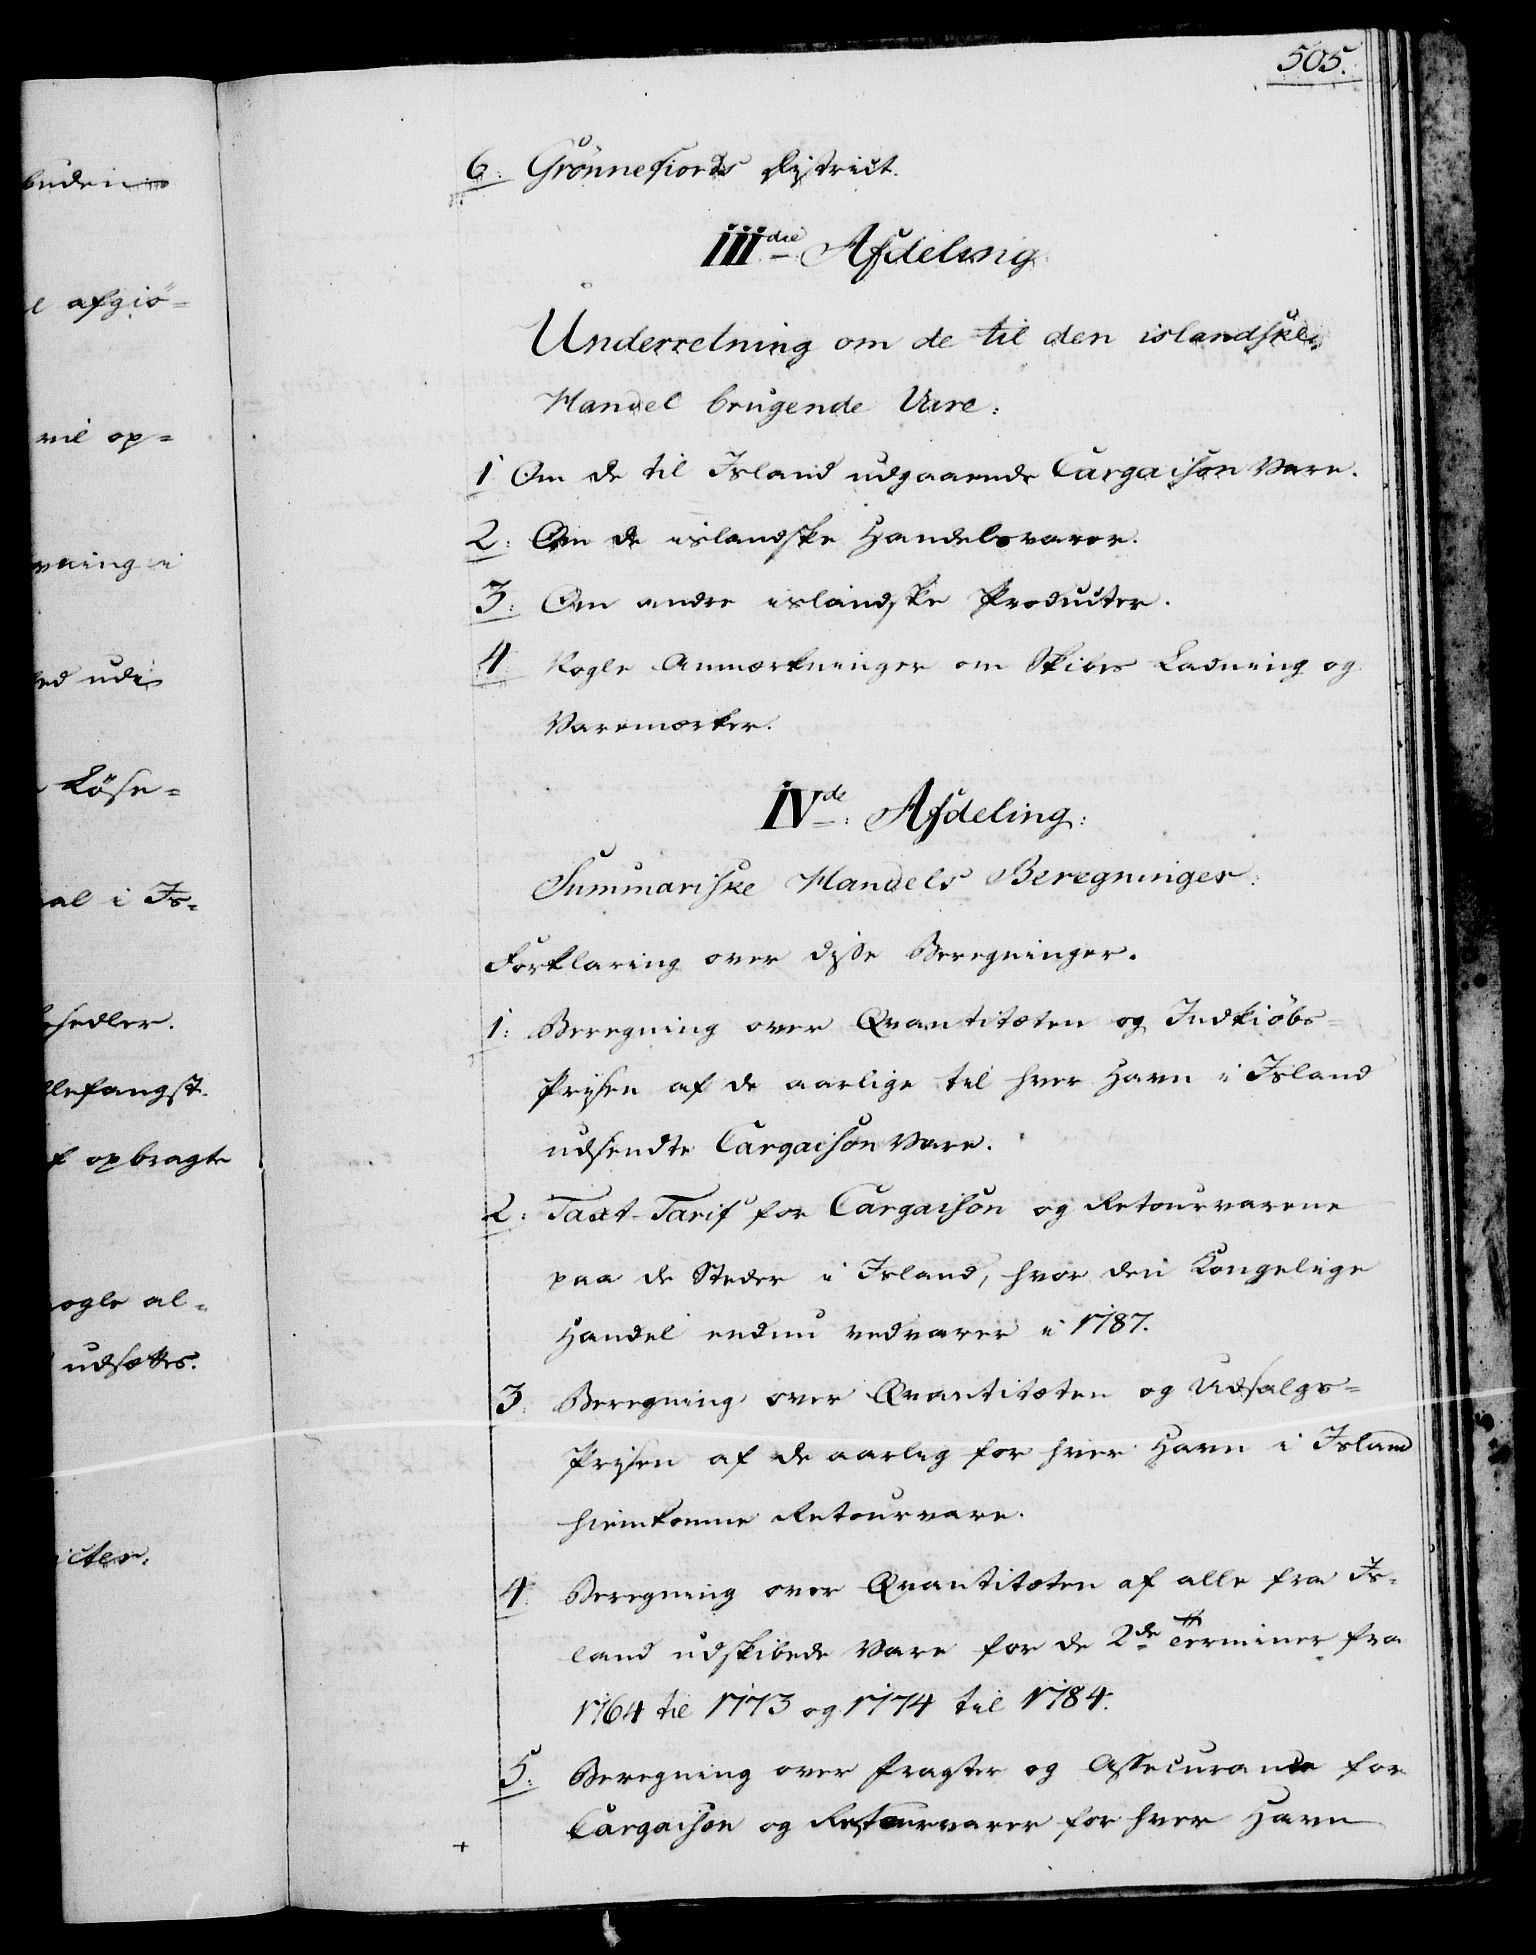 505.
buden
afgiö=
vil op=
vning i
ud udi
Löse=
al i Is=
sedler.
lefangst.
f opbragte
ogle al=
udsættes.
icter.
6. Grönnefiords District.
III die Afdeling
Underretning om de til den islandske
Handel brugende Vare:
1 Om de til Island udgaaende Cargaison Vare.
2: Om de islandske Handelsvarer.
3: Om andre islandske Producter.
4 Nogle Anmærkninger om Skibes Ladning og
Varemærker.
IV de: Afdeling:
Summariske Handels Beregninger:
Forklaring over disse Beregninger.
1: Beregning over Qvantitæten og Indkiöbs=
Prisen af de aarlige til hver Havn i Island
udsendte Cargaison Vare.
2: Taxt-Tarif for Cargaison og Retourvarene
paa de Steder i Island, hvor den Kongelige
Handel endnu vedvarer i 1787.
3. Beregning over Qvantitæten og Udsalgs=
Prisen af de aarlig for hver Havn i Island
hiemkomne Retourvare.
4. Beregning over Qvantitæten af alle fra Is=
land udskibede Vare for de 2de Terminer fra
1764 til 1773 og 1774 til 1784.
5: Beregning over Fragter og Assecurance for
Cargaison og Retourvarer for hver Havn
+